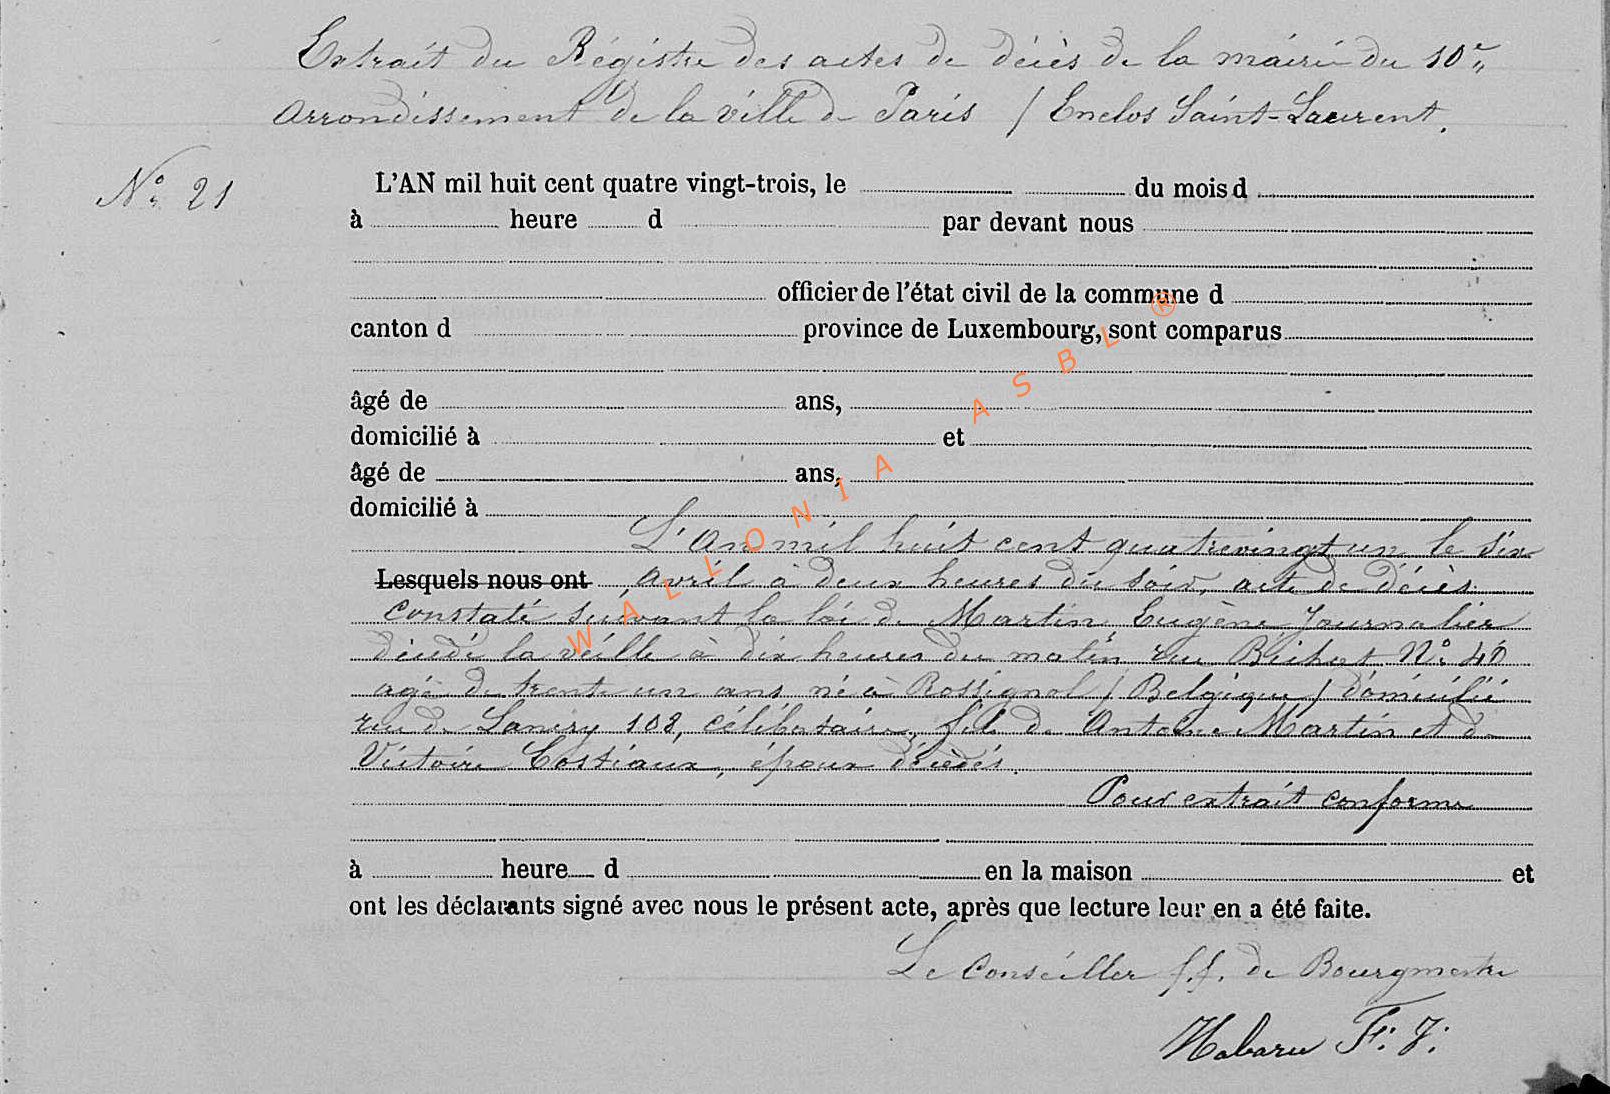 Extrait du Régistre des actes de décès de la mairie du 10e
Arrondissement de la ville de Paris / Enclos Saint-Laurent.
No 21
L'AN mil huit cent quatre vingt-trois, le du mois d
à heure d par devant nous
officier de l'état civil de la commune d
canton d province de Luxembourg, sont comparus
âgé de ans,
domicilié à et
âgé de ans,
domicilié à
L'An mil huit cent quatrevingt un le six
Lesquels nous ont avril à deux heures du soir, acte de décès
constaté suivant la loi de Martin, Eugène Journalier
décédé la veille à dix heures du matin rue Bichat No 40
agé de trente un ans né à Rossignol / Belgique / domicilié
rue de Lancry 108, célibataire, fils de Antoine Martin et de
Victoire Costiaux, époux décédés.
Pour extrait conforme
à heure d en la maison et
ont les déclarants signé avec nous le présent acte, après que lecture leur en a été faite.
Le Conseiller f.f. de Bourgmestre
Habaru F. J.
WALLONIA ASBL ®